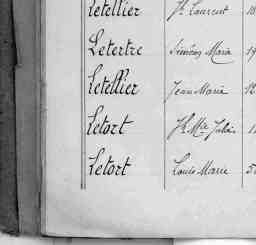 Letellier Jh Laurent
Letertre Siméon Marie
Letellier Jean Marie
Letort Jh Mie Julien
Letort Louis Marie